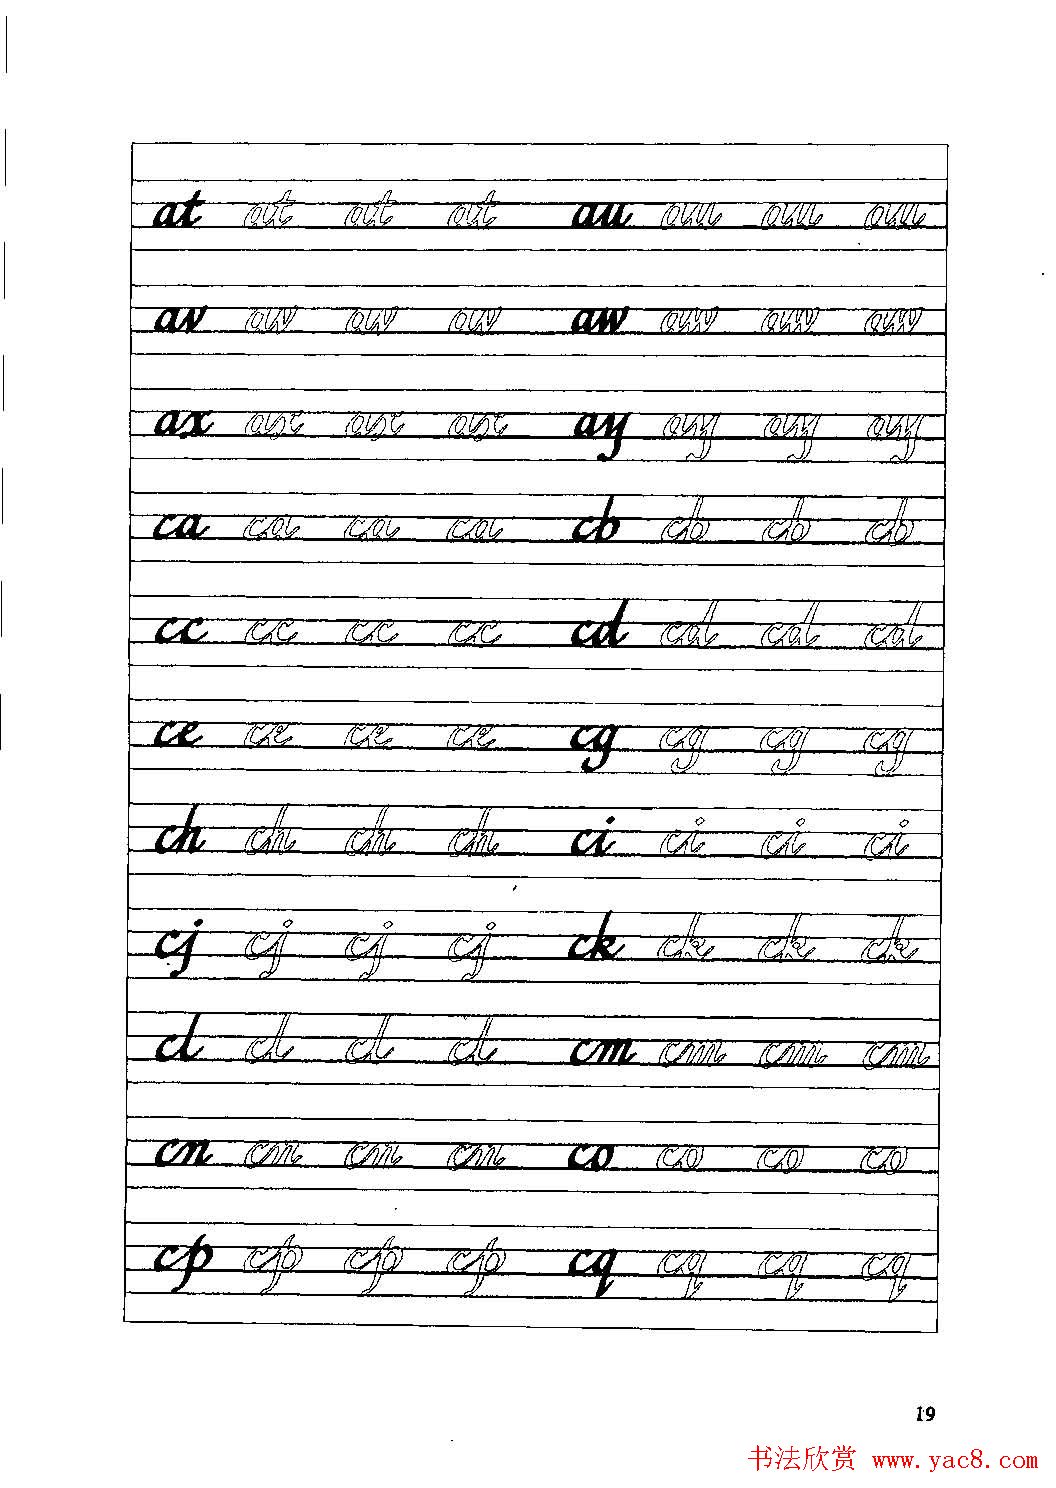 at at at at au au au au
av av av av aw aw aw aw
ax ax ax ax ay ay ay ay
ca ca ca ca cb cb cb cb
cc cc cc cc cd cd cd cd
ce ce ce ce cg cg cg cg
ch ch ch ch ci ci ci ci
cj cj cj cj ck ck ck ck
cl cl cl cl cm cm cm cm
cn cn cn cn co co co co
cp cp cp cp cq cq cq cq
19
书法欣赏 www.yac8.com